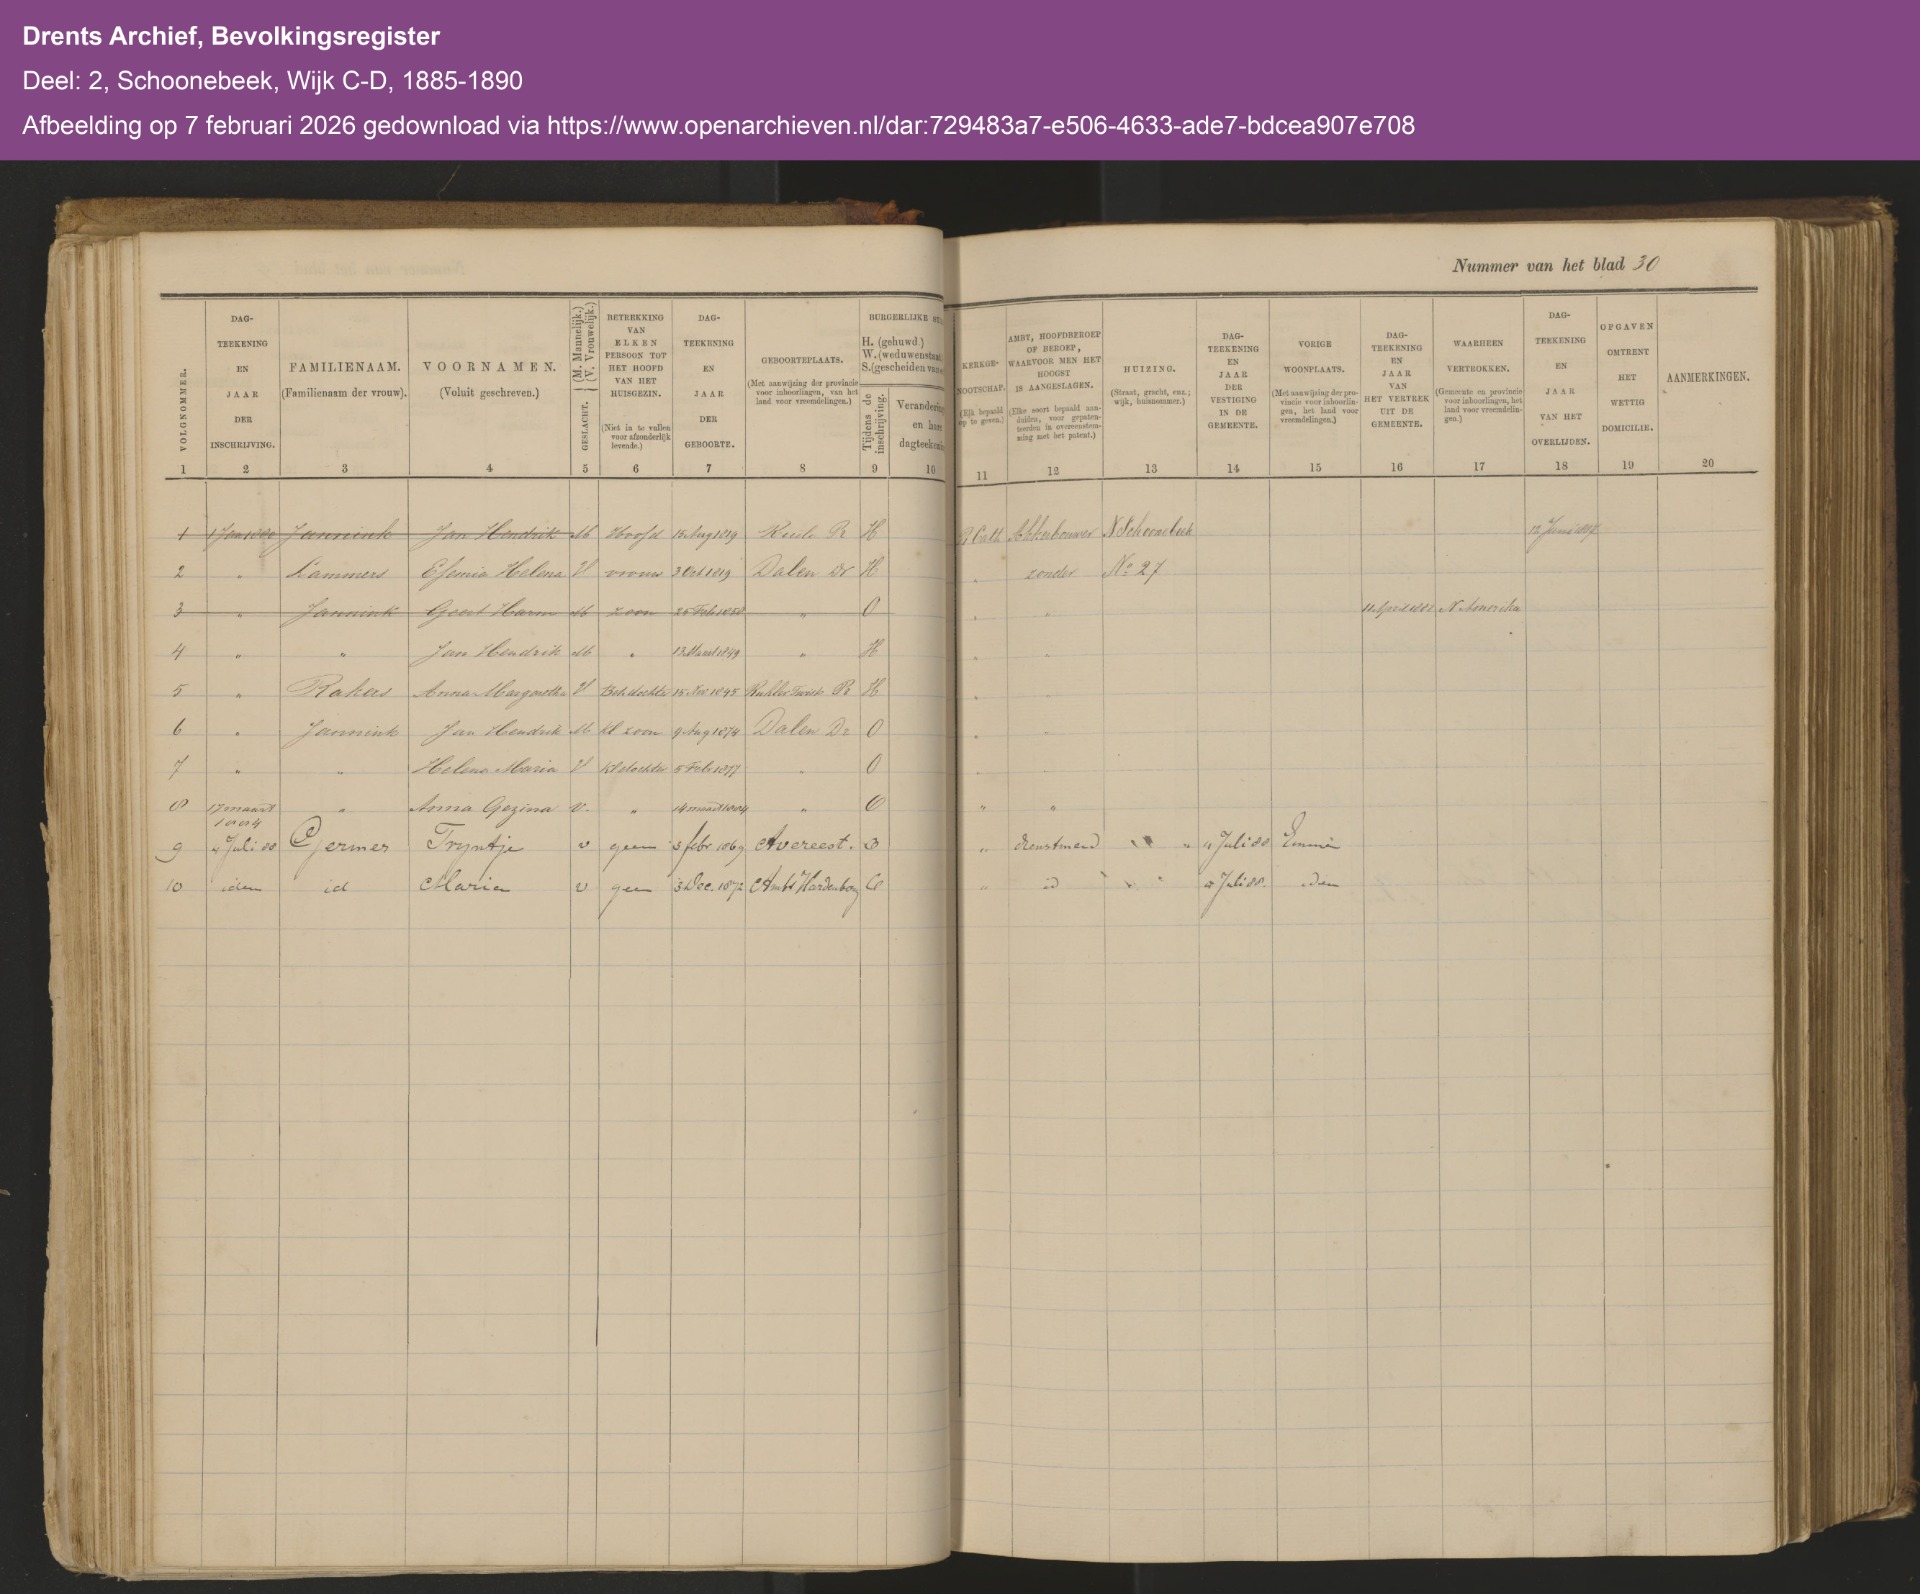 Drents Archief, Bevolkingsregister
Deel: 2, Schoonebeek, Wijk C-D, 1885-1890
Afbeelding op 7 februari 2026 gedownload via https://www.openarchieven.nl/dar:729483a7-e506-4633-ade7-bdcea907e708
Nummer van het blad 30
VOLGNOMMER.
DAG-TEEKENING EN JAAR DER INSCHRIJVING.
FAMILIENAAM. (Familienaam der vrouw).
VOORNAMEN. (Voluit geschreven.)
GESLACHT. (M. Mannelijk.) (V. Vrouwelijk.)
BETREKKING VAN ELKEN PERSOON TOT HET HOOFD VAN HET HUISGEZIN. (Niet in te vullen voor afzonderlijk levende.)
DAG-TEEKENING EN JAAR DER GEBOORTE.
GEBOORTEPLAATS. (Met aanwijzing der provincie voor inboorlingen, van het land voor vreemdelingen.)
BURGERLIJKE
H. (gehuwd.)
W. (weduwenstaat.
S. (gescheiden van
Tijdens de inschrijving.
Verandering en hare dagteekening
KERKGENOOTSCHAP. (Elk bepaald op te geven.)
AMBT, HOOFDBEROEP OF BEROEP, WAARVOOR MEN HET HOOGST IS AANGESLAGEN. (Elke soort bepaald aanduiden, voor gepatenteerden in overeenstemming met het patent.)
HUIZING. (Straat, gracht, enz.; wijk, huisnommer.)
DAG-TEEKENING EN JAAR DER VESTIGING IN DE GEMEENTE.
VORIGE WOONPLAATS. (Met aanwijzing der provincie voor inboorlingen, het land voor vreemdelingen.)
DAG-TEEKENING EN JAAR VAN HET VERTREK UIT DE GEMEENTE.
WAARHEEN VERTROKKEN. (Gemeente en provincie voor inboorlingen, het land voor vreemdelingen.)
DAG-TEEKENING EN JAAR VAN HET OVERLIJDEN.
OPGAVEN OMTRENT HET WETTIG DOMICILIE.
AANMERKINGEN.
1 2 3 4 5 6 7 8 9 10 11 12 13 14 15 16 17 18 19 20
1 1 Jan 1880 Jannink Jan Hendrik M Hoofd 15 Aug 1819 H R Cath Akkerbouwer N Schoonebeek 12 Juni
2 " Lammers Efemia Helena V vrouw 3 Oct 1819 Dalen Dr H " zonder No 27
3 " Jannink Geert Harm M zoon 25 Feb 1850 " O " " N Amerika
4 " " Jan Hendrik M " 13 Maart 1849 " H " "
5 " Anna Margaretha V Beh dochter 15 Nov 1845 Twist H " "
6 " Jannink Jan Hendrik M Kl zoon 9 Aug 1874 Dalen Dr O " "
7 " " Helena Maria V Kl dochter 5 Feb 1877 " O " "
8 17 maart 1884 " Anna Gezina V. " 14 maart 1884 " O " "
9 4 Juli 88 Germer Tryntje v geen 3 febr 1869 Avereest. O " dienstmeid " " 4 Juli 88 Emmen
10 idem id Maria v geen 3 Dec. 1872 Ambt Hardenberg O " id " " 4 Juli 88. idem